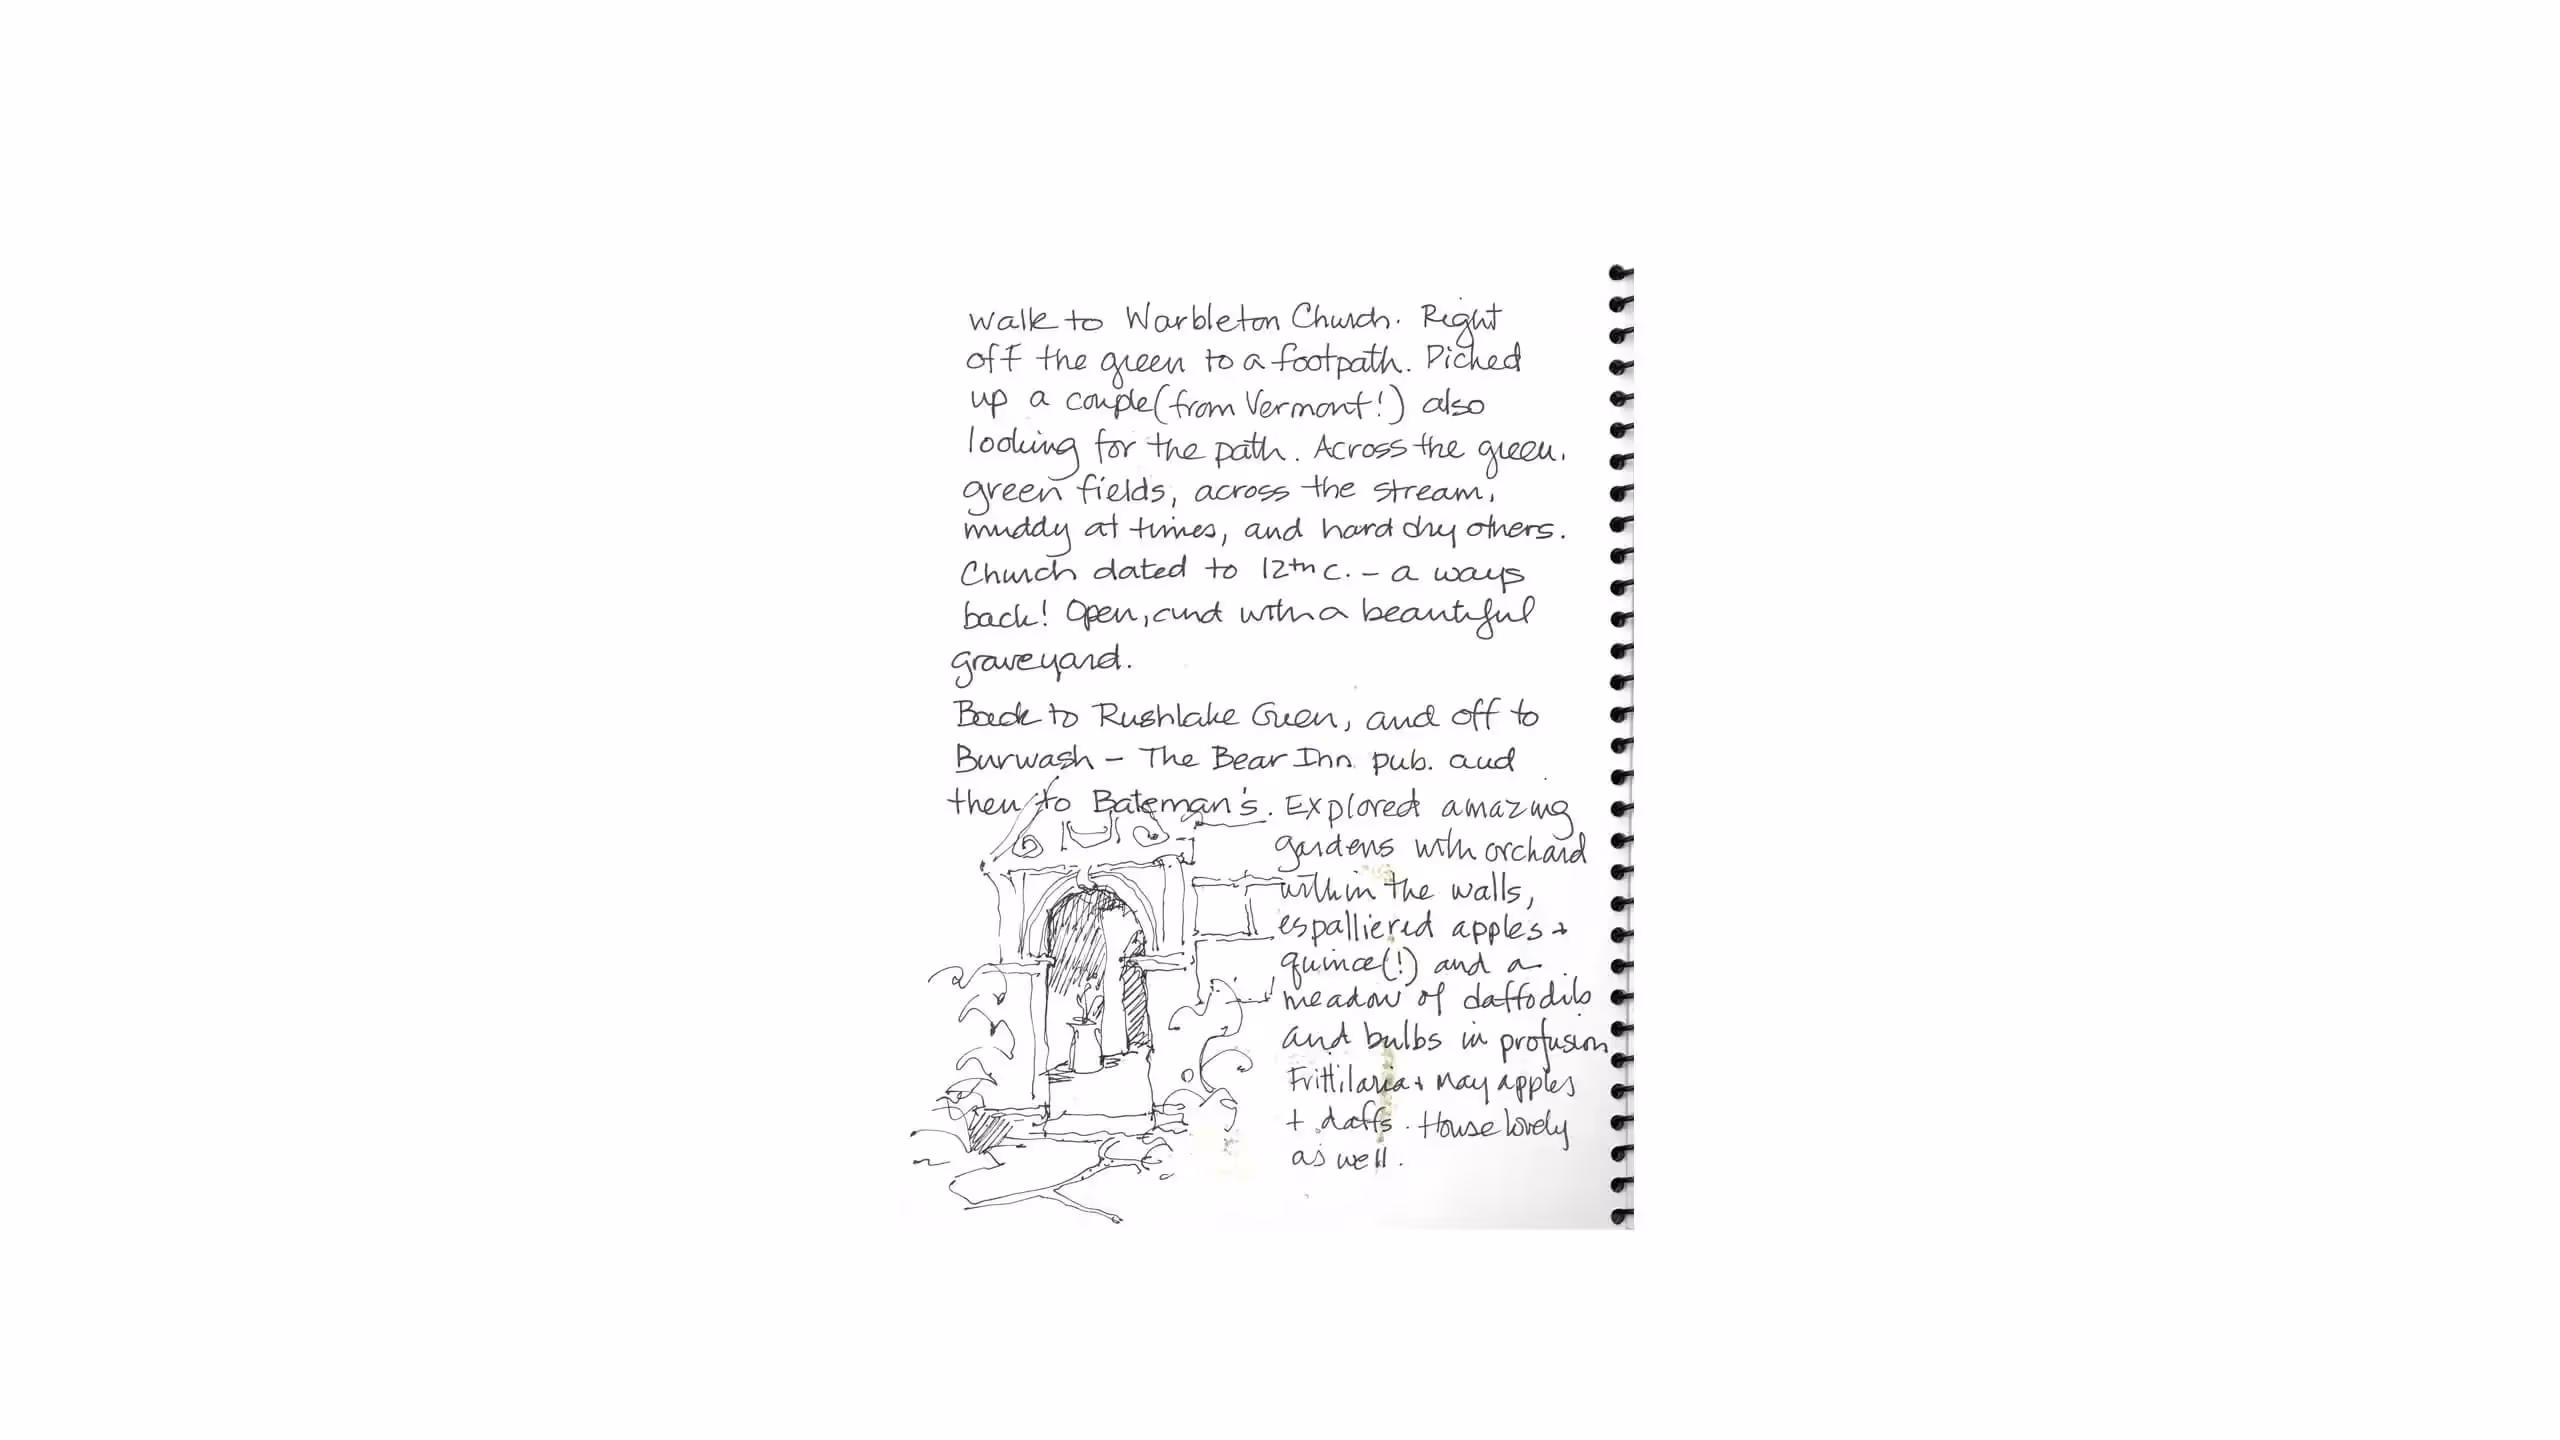 walk to Warbleton Church. Right
off the green to a footpath. Picked
up a couple (from Vermont!) also
looking for the path. Across the green,
green fields, across the stream,
muddy at times, and hard dry others.
Church dated to 12th c. - a ways
back! Open, and with a beautiful
graveyard.
Back to Rushlake Green, and off to
Burwash - The Bear Inn pub. and
then to Bateman's. Explored amazing
gardens with orchard
within the walls,
espalliered apples +
quince(!) and a
meadow of daffodils
and bulbs in profusion
Frittilaria + May apples
+ daffs. House lovely
as well.